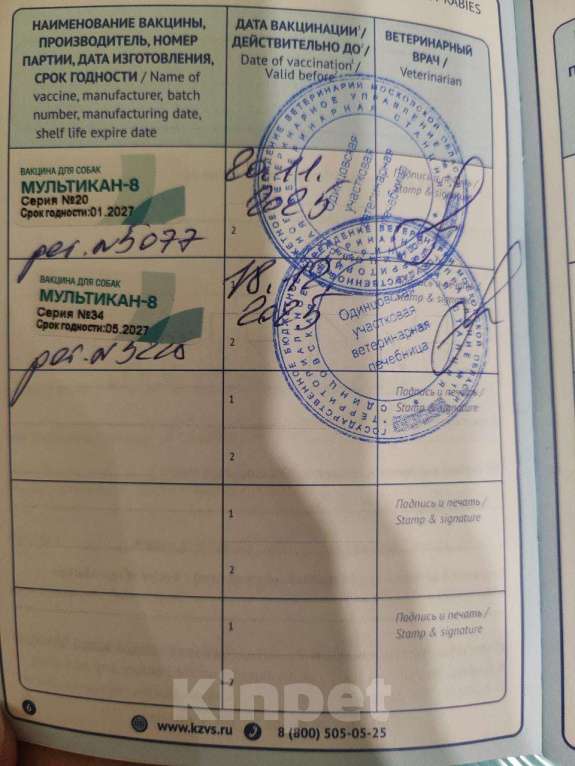 RABIES
НАИМЕНОВАНИЕ ВАКЦИНЫ,
ПРОИЗВОДИТЕЛЬ, НОМЕР
ПАРТИИ, ДАТА ИЗГОТОВЛЕНИЯ,
СРОК ГОДНОСТИ / Name of
vaccine, manufacturer, batch
number, manufacturing date,
shelf life expire date
ДАТА ВАКЦИНАЦИИ¹/
ДЕЙСТВИТЕЛЬНО ДО²/
Date of vaccination¹/
Valid before²
ВЕТЕРИНАРНЫЙ
ВРАЧ /
Veterinarian
ВАКЦИНА ДЛЯ СОБАК
МУЛЬТИКАН-8
Серия №20
Срок годности:01.2027
рег. №5077
20.11.
2025
2
Подпись и печать /
Stamp & signature
Одинцовская
участковая
ветеринарная
лечебница
ВАКЦИНА ДЛЯ СОБАК
МУЛЬТИКАН-8
Серия №34
Срок годности:05.2027
18.12
2025
2
Stamp & signature
Одинцовская
участковая
ветеринарная
лечебница
1
2
Подпись и печать /
Stamp & signature
1
2
Подпись и печать /
Stamp & signature
1
2
Подпись и печать /
Stamp & signature
Kinpet
6
www.kzvs.ru
8 (800) 505-05-25